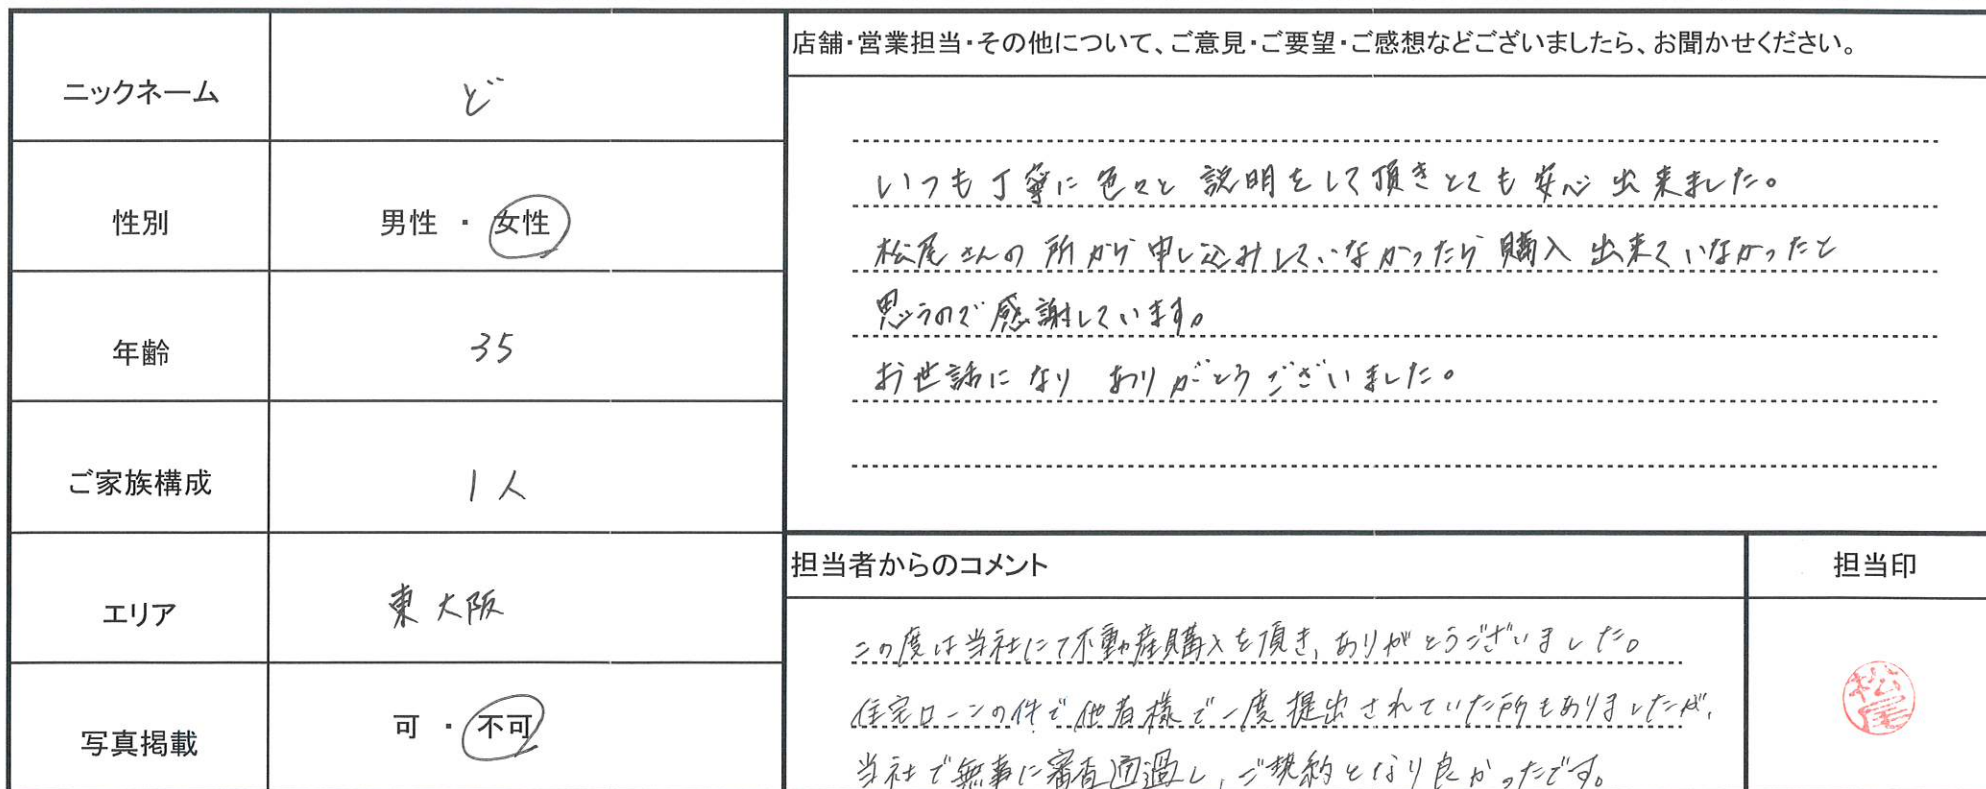 ニックネーム ど
性別 男性 ・ 女性
年齢 35
ご家族構成 1人
エリア 東大阪
写真掲載 可 ・ 不可
店舗・営業担当・その他について、ご意見・ご要望・ご感想などございましたら、お聞かせください。
いつも丁寧に色々と説明をして頂きとても安心出来ました。
松尾さんの所から申し込みしていなかったら購入出来ていなかったと
思うので感謝しています。
お世話になり ありがとうございました。
担当者からのコメント
この度は当社にて不動産購入を頂き、ありがとうございました。
住宅ローンの件で他者様で一度提出されていた所もありましたが、
当社で無事に審査通過し、ご契約となり良かったです。
担当印
松尾